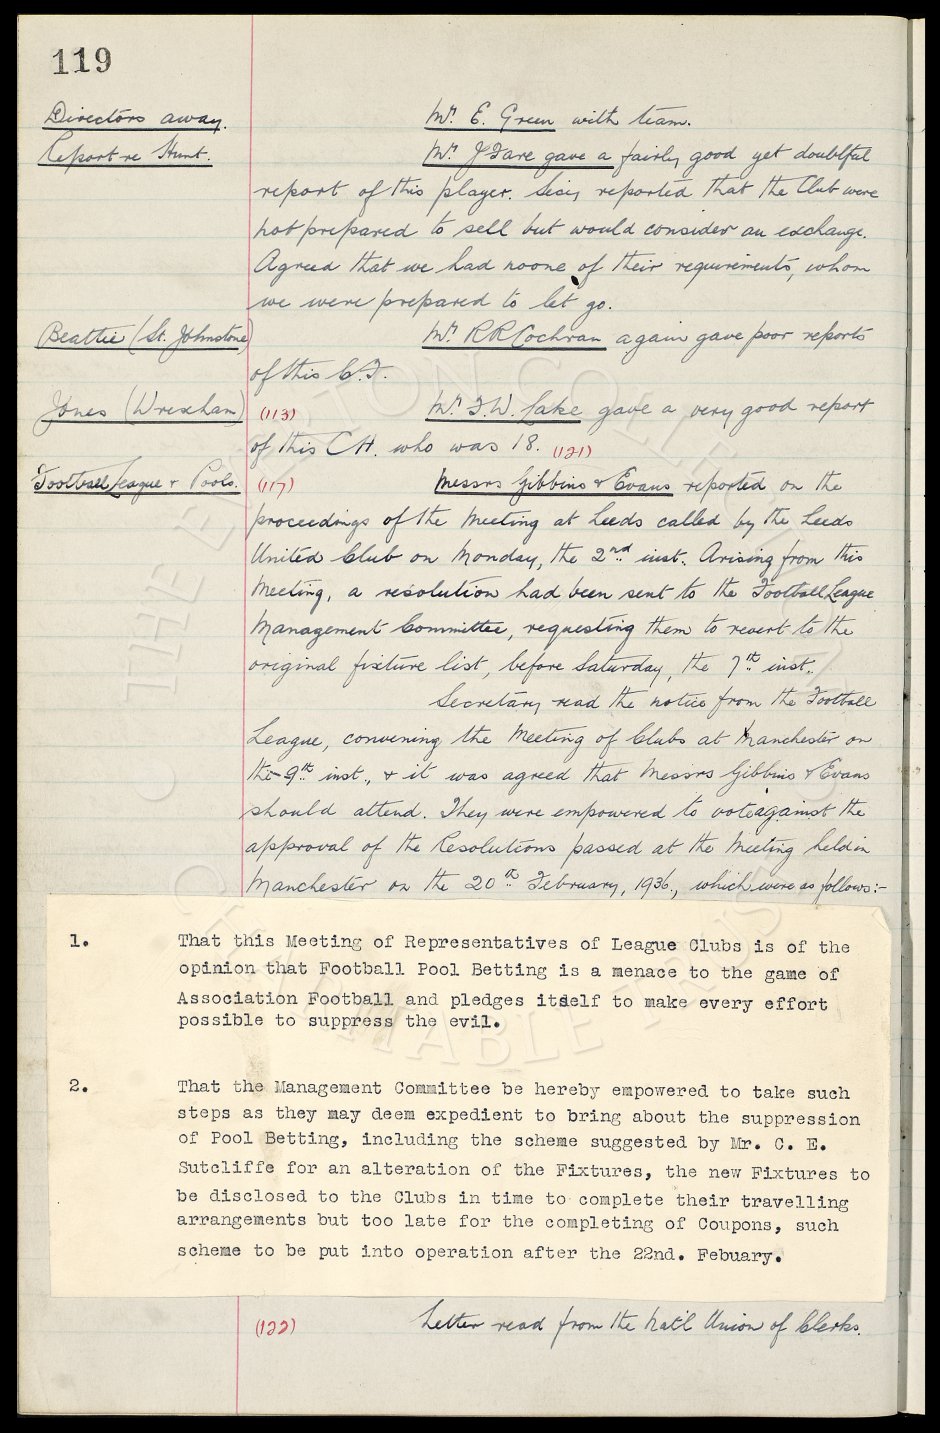 119
Directors away. Mr. E. Green with team.
Report re Hunt. Mr. J Fare gave a fairly good yet doubtful
report of this player. Secy reported that the Club were
not prepared to sell but would consider an exchange.
Agreed that we had noone of their requirements, whom
we were prepared to let go.
Beattie (St. Johnstone) Mr. R R Cochran again gave poor reports
of this C.F.
Jones (Wrexham) (113) Mr. T.W. Lake gave a very good report
of this C H. who was 18. (121)
Football League & Pools. (117) Messrs Gibbins & Evans reported on the
proceedings of the Meeting at Leeds called by the Leeds
United Club on Monday, the 2nd inst. Arising from this
Meeting, a resolution had been sent to the Football League
Management Committee, requesting them to revert to the
original fixture list, before Saturday, the 7th inst.
Secretary read the notice from the Football
League, convening the Meeting of Clubs at Manchester on
the 9th inst., & it was agreed that Messrs Gibbins & Evans
should attend. They were empowered to vote against the
approval of the Resolutions passed at the Meeting held in
Manchester on the 20th February, 1936, which were as follows:-
1. That this Meeting of Representatives of League Clubs is of the
opinion that Football Pool Betting is a menace to the game of
Association Football and pledges itself to make every effort
possible to suppress the evil.
2. That the Management Committee be hereby empowered to take such
steps as they may deem expedient to bring about the suppression
of Pool Betting, including the scheme suggested by Mr. C. E.
Sutcliffe for an alteration of the Fixtures, the new Fixtures to
be disclosed to the Clubs in time to complete their travelling
arrangements but too late for the completing of Coupons, such
scheme to be put into operation after the 22nd. Febuary.
(122) Letter read from the Nat'l Union of Clerks.